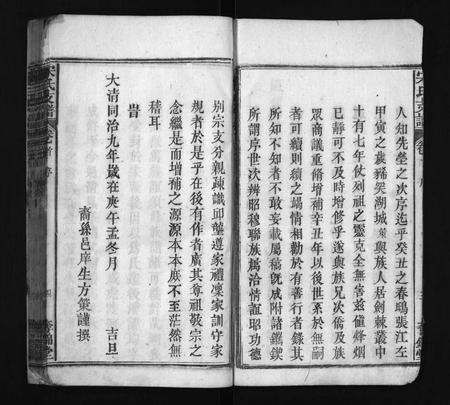 人知先塋之次序迄乎癸丑之春鴟張江左
甲寅之歲豨突湖城棠與族人居劍棘叢中
十有七年仗列祖之靈克全無害茲僅烽烟
已靜可不及時增修乎遂與族兄次儒及族
眾商議重脩增補辛丑年以後世系於無嗣
者可續則續之竭情相勸於有善行者錄其
所知不知者不敢妄載屬稿旣成附諸鐫鍥
所謂序世次辨昭穆聯族屬洽情誼昭功德
别宗支分親疎識邱壟遵家禮凜家訓守家
規者於是乎在後有作者廣其尊祖敬宗之
念繼是而增補之源源本本庶不至茫然無
稽耳
旹
大清同治九年歲在庚午孟冬月　吉旦
裔孫邑庠生方篯謹撰
宋氏支譜 卷首 序